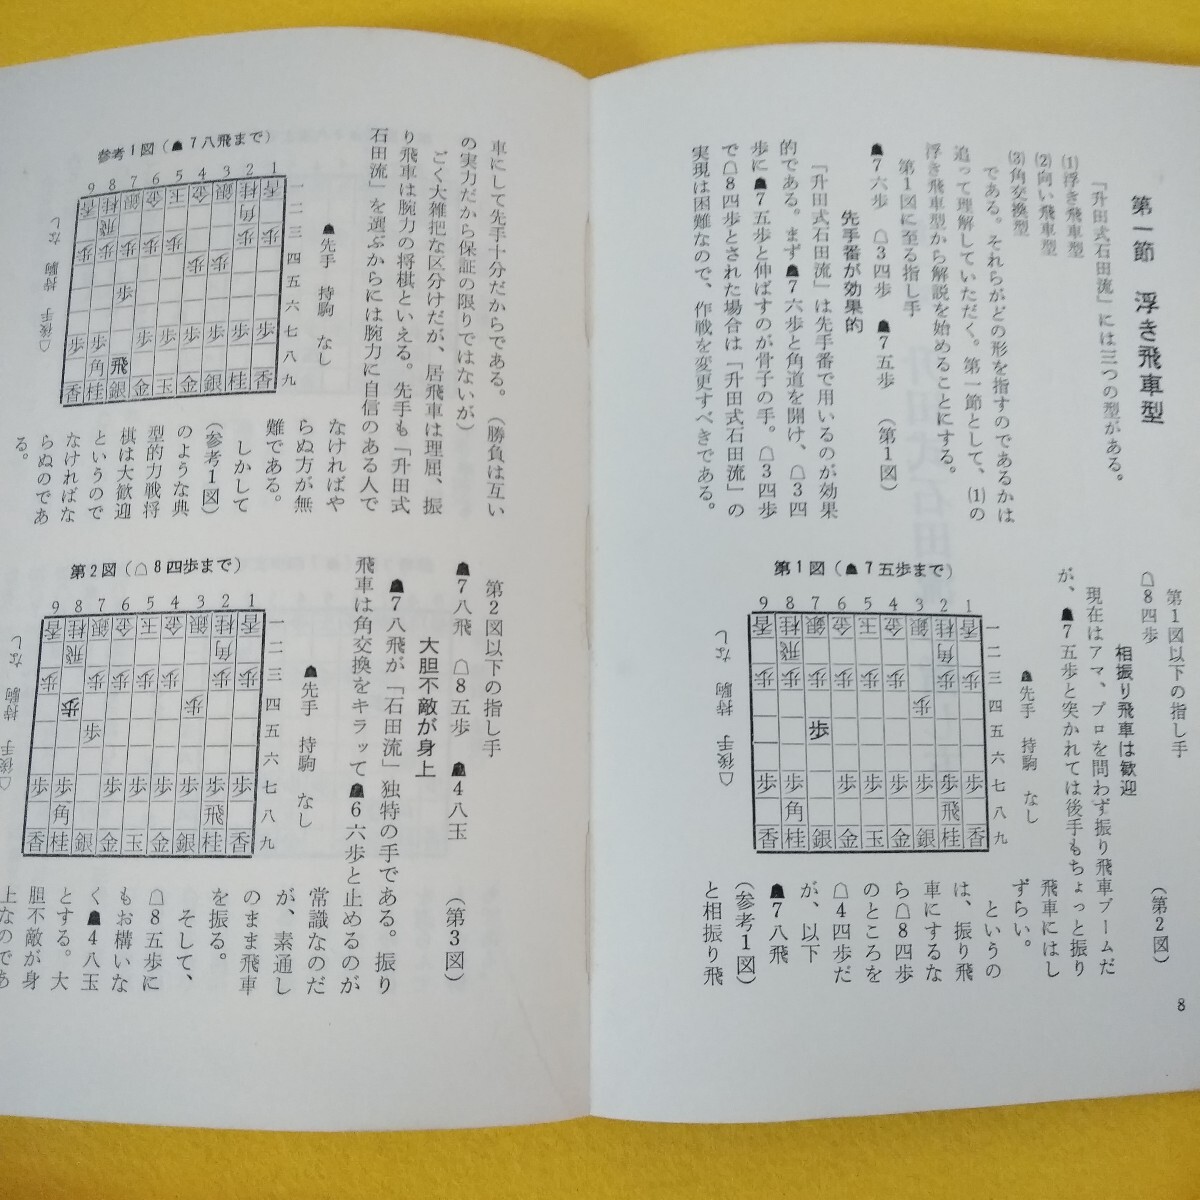 第一節　浮き飛車型
「升田式石田流」には三つの型がある。
(1)浮き飛車型
(2)向い飛車型
(3)角交換型
である。それらがどの形を指すのであるかは
追って理解していただく。第一節として、(1)の
浮き飛車型から解説を始めることにする。
第1図に至る指し手
☗7六歩　☖3四歩　☗7五歩　（第1図）
先手番が効果的
「升田式石田流」は先手番で用いるのが効果
的である。まず☗7六歩と角道を開け、☖3四
歩に☗7五歩と伸ばすのが骨子の手。☖3四歩
で☖8四歩とされた場合は「升田式石田流」の
実現は困難なので、作戦を変更すべきである。
第1図以下の指し手
☖8四歩　（第2図）
相振り飛車は歓迎
現在はアマ、プロを問わず振り飛車ブームだ
が、☗7五歩と突かれては後手もちょっと振り
飛車にはし
ずらい。
というの
は、振り飛
車にするな
ら☖8四歩
のところを
☖4四歩だ
が、以下
☗7八飛
（参考1図）
と相振り飛
第1図（☗7五歩まで）
9 8 7 6 5 4 3 2 1
香桂銀金玉金銀桂香 一
飛角 二
歩歩歩歩歩歩歩歩 三
歩 四
歩 五
六
歩歩歩歩歩歩歩歩 七
角飛 八
香桂銀金玉金銀桂香 九
☗先手　持駒　なし
☖後手　持駒　なし
8
車にして先手十分だからである。（勝負は互い
の実力だから保証の限りではないが）
ごく大雑把な区分けだが、居飛車は理屈、振
り飛車は腕力の将棋といえる。先手も「升田式
石田流」を選ぶからには腕力に自信のある人で
なければや
らぬ方が無
難である。
しかして
（参考1図）
のような典
型的力戦将
棋は大歓迎
というので
なければな
らぬのであ
る。
参考1図（☗7八飛まで）
9 8 7 6 5 4 3 2 1
香桂銀金玉金銀桂香 一
飛角 二
歩歩歩歩歩歩歩 三
歩歩 四
歩 五
六
歩歩歩歩歩歩歩歩 七
角飛 八
香桂銀金玉金銀桂香 九
☗先手　持駒　なし
☖後手　持駒　なし
第2図以下の指し手
☗7八飛　☖8五歩　☗4八玉　（第3図）
大胆不敵が身上
☗7八飛が「石田流」独特の手である。振り
飛車は角交換をキラッて☗6六歩と止めるのが
常識なのだ
が、素通し
のまま飛車
を振る。
そして、
☖8五歩に
もお構いな
く☗4八玉
とする。大
胆不敵が身
上なのであ
第2図（☖8四歩まで）
9 8 7 6 5 4 3 2 1
香桂銀金玉金銀桂香 一
飛角 二
歩歩歩歩歩歩歩 三
歩歩 四
歩 五
六
歩歩歩歩歩歩歩歩 七
角飛 八
香桂銀金玉金銀桂香 九
☗先手　持駒　なし
☖後手　持駒　なし